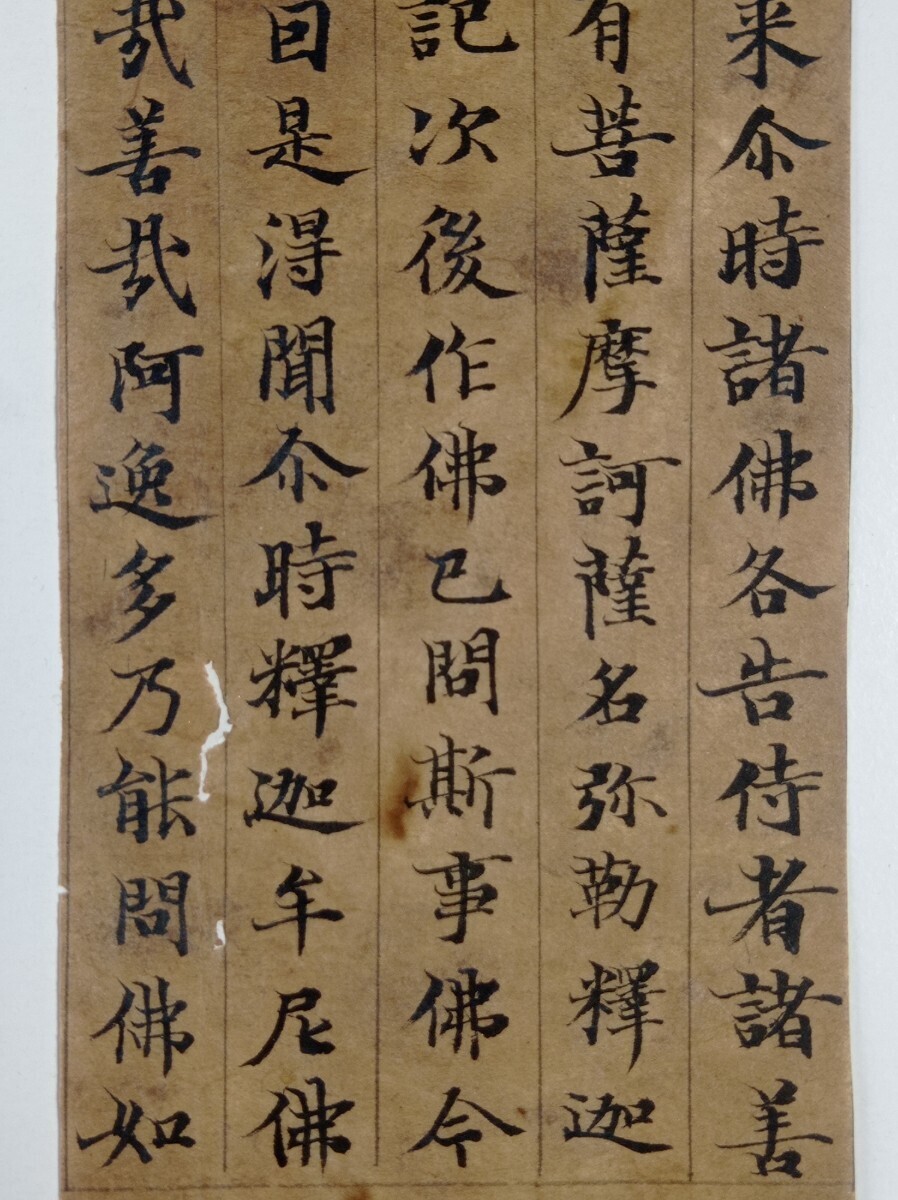 来尒時諸佛各告侍者諸善
有菩薩摩訶薩名弥勒釋迦
記次後作佛已問斯事佛今
曰是得聞尒時釋迦牟尼佛
哉善哉阿逸多乃能問佛如